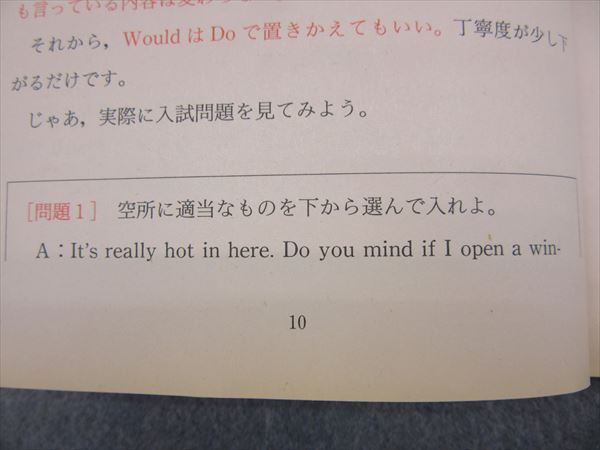 も言っている内容は変わ
それから，Would は Do で置きかえてもいい。丁寧度が少し下
がるだけです。
じゃあ，実際に入試問題を見てみよう。
［問題１］ 空所に適当なものを下から選んで入れよ。
A：It's really hot in here. Do you mind if I open a win-
10